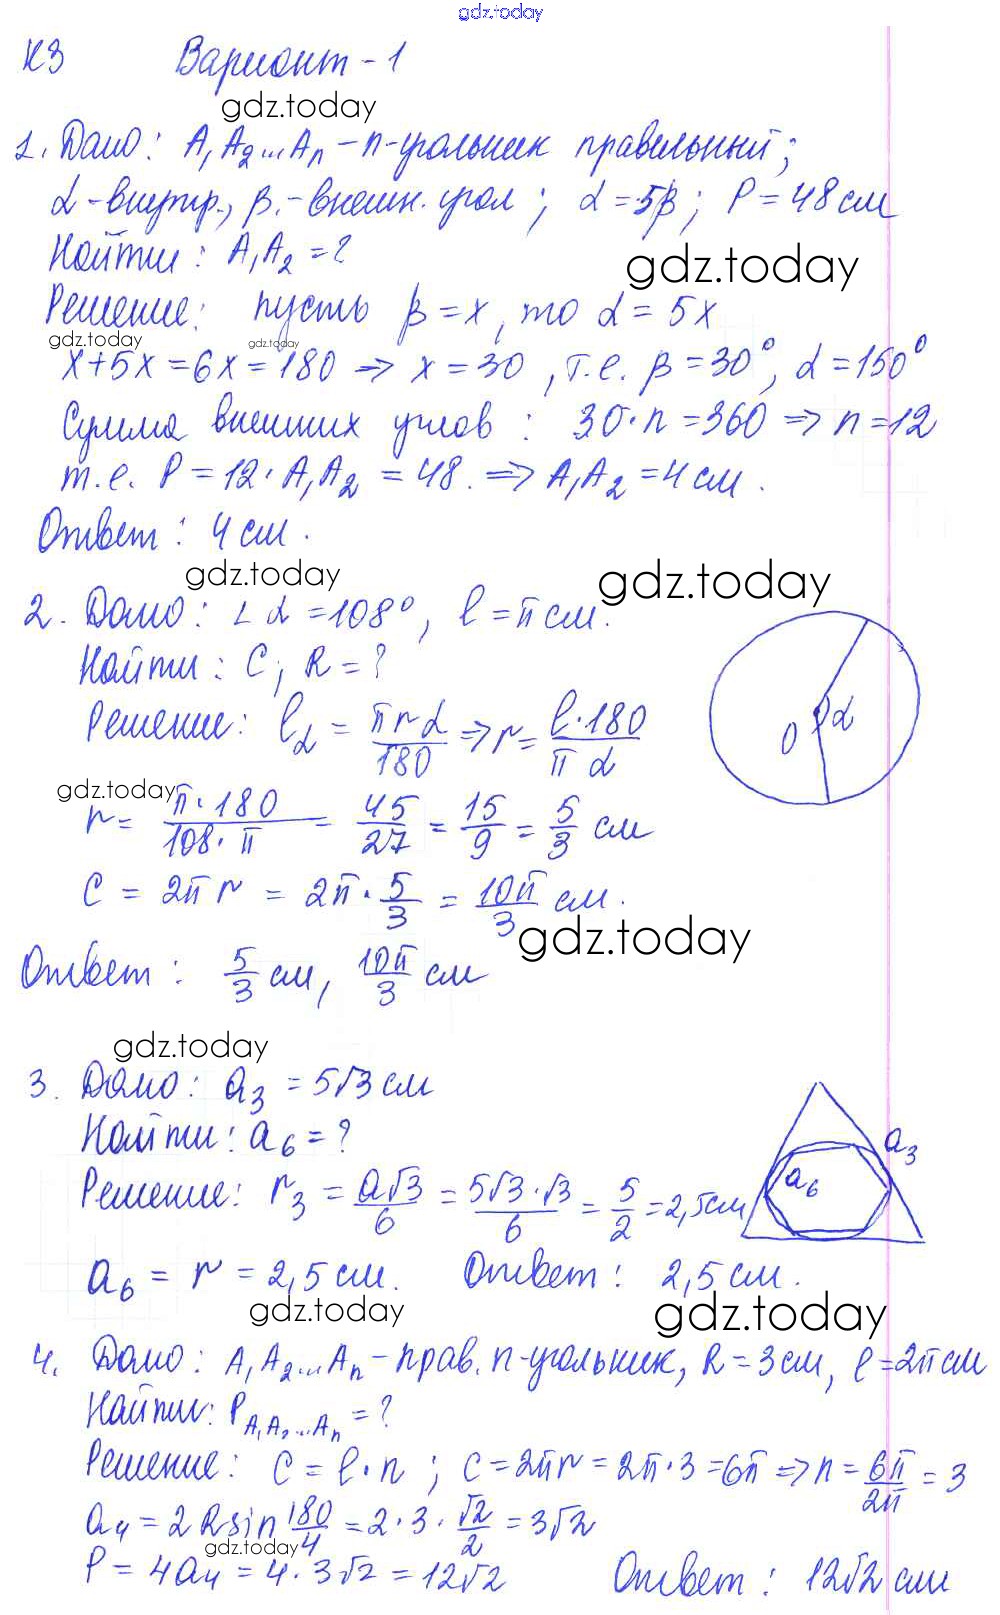 gdz.today
К3 Вариант-1
gdz.today
1. Дано: A₁A₂...Aₙ – n-угольник правильный;
α-внутр., β.-внешн. угол; α = 5β; P = 48 см
Найти: A₁A₂ = ?
gdz.today
Решение: пусть β = x, то α = 5x
gdz.today gdz.today
x+5x = 6x = 180 => x = 30, т.е. β = 30°, α = 150°
Сумма внешних углов: 30·n = 360 => n = 12
т.е. P = 12·A₁A₂ = 48. => A₁A₂ = 4 см.
Ответ: 4 см.
gdz.today gdz.today
2. Дано: ∠α = 108°, l = π см.
Найти: C; R = ?
Решение: l_α = πrα/180 => r = l·180/π α
O α
gdz.today
r = π·180/108·π = 45/27 = 15/9 = 5/3 см
C = 2πr = 2π·5/3 = 10π/3 см.
gdz.today
Ответ: 5/3 см, 10π/3 см
gdz.today
3. Дано: a₃ = 5√3 см
Найти: a₆ = ?
a₃
a₆
Решение: r₃ = a√3/6 = 5√3·√3/6 = 5/2 = 2,5 см
a₆ = r = 2,5 см. Ответ: 2,5 см.
gdz.today gdz.today
4. Дано: A₁A₂...Aₙ – прав. n-угольник, R = 3 см, l = 2π см
Найти: P A₁A₂...Aₙ = ?
Решение: C = l·n; C = 2πr = 2π·3 = 6π => n = 6π/2π = 3
a₄ = 2R sin 180/4 = 2·3·√2/2 = 3√2
gdz.today
P = 4a₄ = 4·3√2 = 12√2 Ответ: 12√2 см